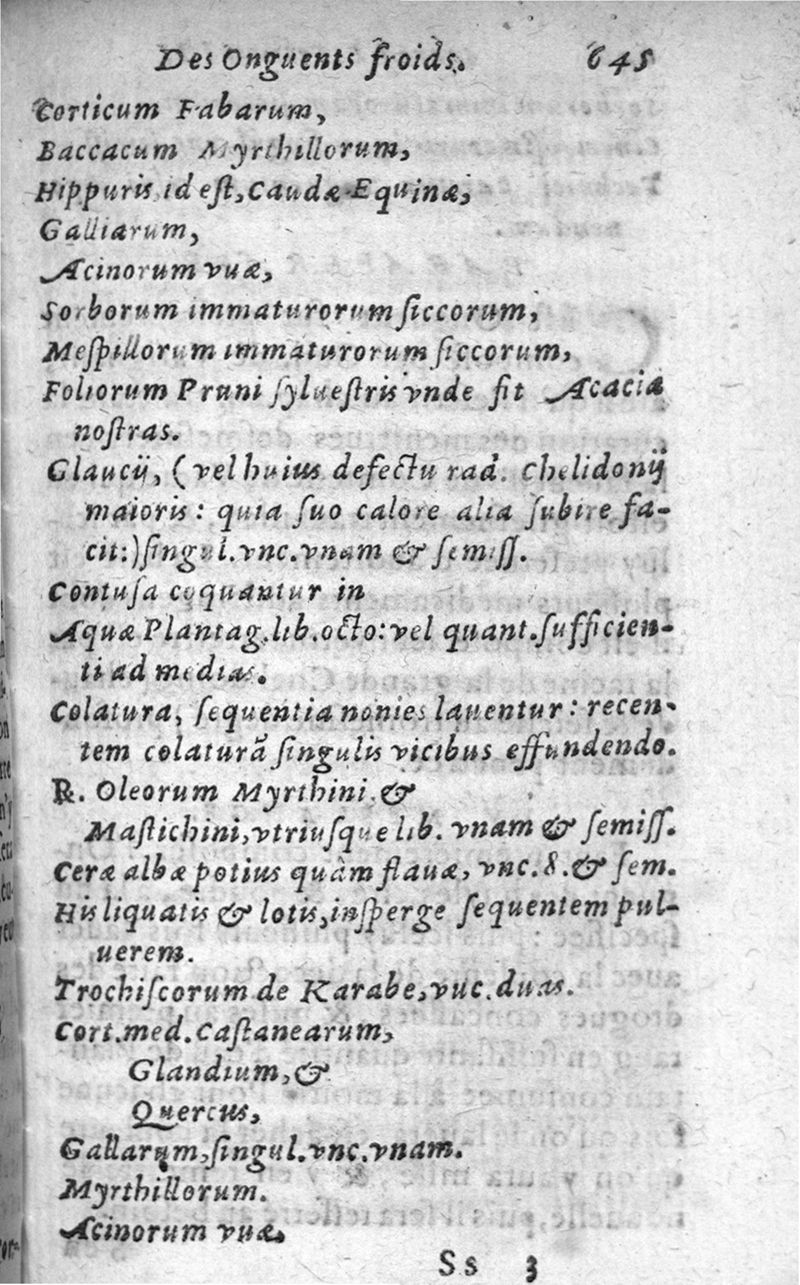 Des Onguents froids. 645
Corticum Fabarum,
Baccacum Myrthillorum,
Hippuris id eſt, Caudæ Equinæ,
Galliarum,
Acinorum vuæ,
Sorborum immaturorum ſiccorum,
Meſpillorum immaturorum ſiccorum,
Foliorum Pruni ſylueſtris vnde fit Acacia
noſtras.
Glaucij, (vel huius defectu rad. Chelidonij
maioris: quia ſuo calore alia ſubire fa-
cit:)ſingul.vnc.vnam & ſemiſſ.
Contuſa coquantur in
Aquæ Plantag.lib.octo:vel quant.ſufficien-
ti ad medias.
Colatura, ſequentia nonies lauentur: recen-
tem colaturã ſingulis vicibus effundendo.
℞. Oleorum Myrthini &
Maſtichini,vtriuſque lib. vnam & ſemiſſ.
Ceræ albæ potius quàm flauæ, vnc.8.& ſem.
His liquatis & lotis,inſperge ſequentem pul-
uerem.
Trochiſcorum de Karabe,vuc.duas.
Cort.med.Caſtanearum,
Glandium,&
Quercus,
Gallarum,ſingul.vnc.vnam.
Myrthillorum.
Acinorum vuæ.
Ss 3